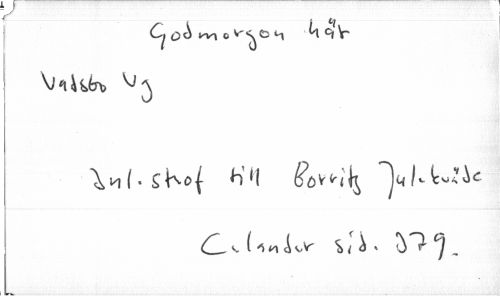 Godmorgon här
Vadsbo Vg
Inl. strof till Borritz Julekväde
Celander sid. 379.